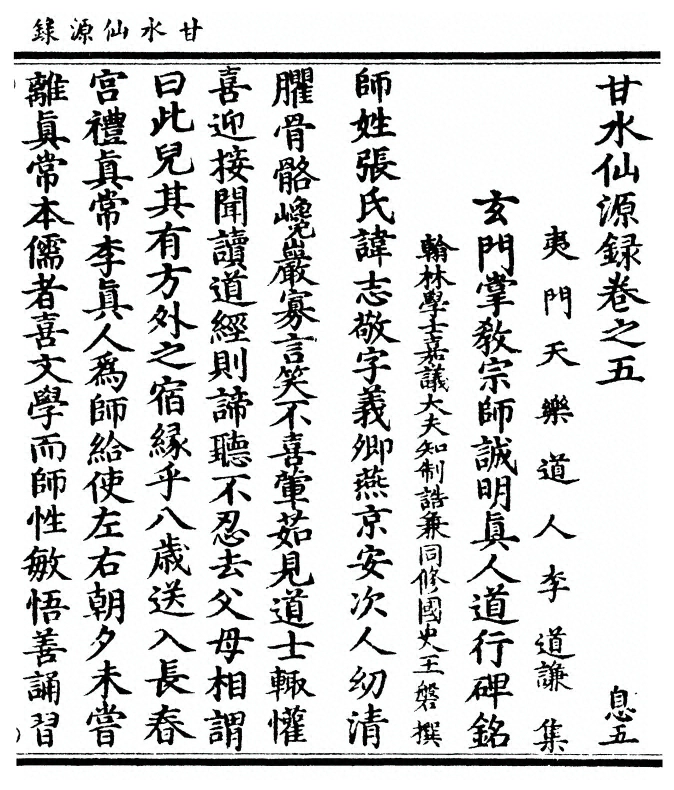 甘水仙源録
甘水仙源録卷之五 息五
夷門天樂道人李道謙集
玄門掌敎宗師誠明眞人道行碑銘
翰林學士嘉議大夫知制誥兼同修國史王磐撰
師姓張氏諱志敬字義卿燕京安次人幼清
臞骨骼巉巖寡言笑不喜葷茹見道士輒懽
喜迎接聞讀道經則諦聽不忍去父母相謂
曰此兒其有方外之宿緣乎八歲送入長春
宮禮眞常李眞人爲師給使左右朝夕未嘗
離眞常本儒者喜文學而師性敏悟善誦習